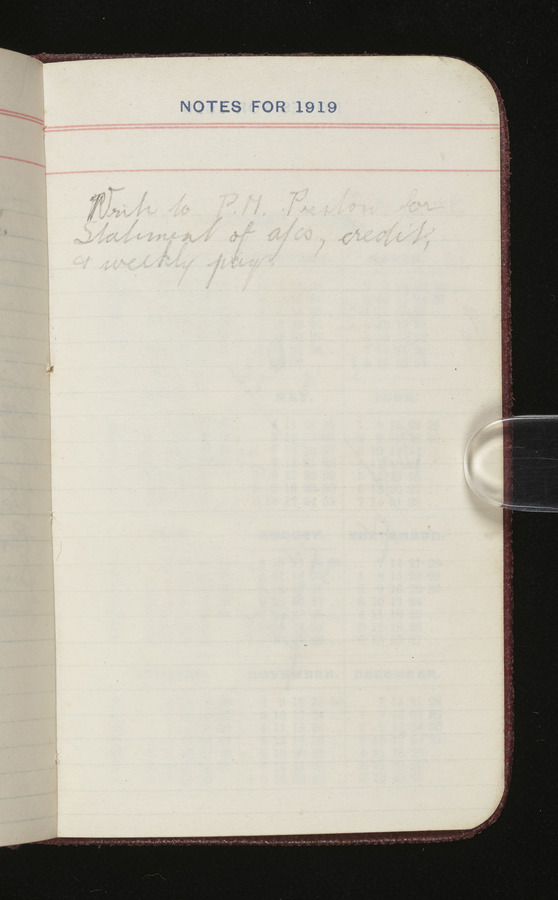 NOTES FOR 1919
Write to P.M. Preston for
Statement of a/cs, credits,
& weekly pay